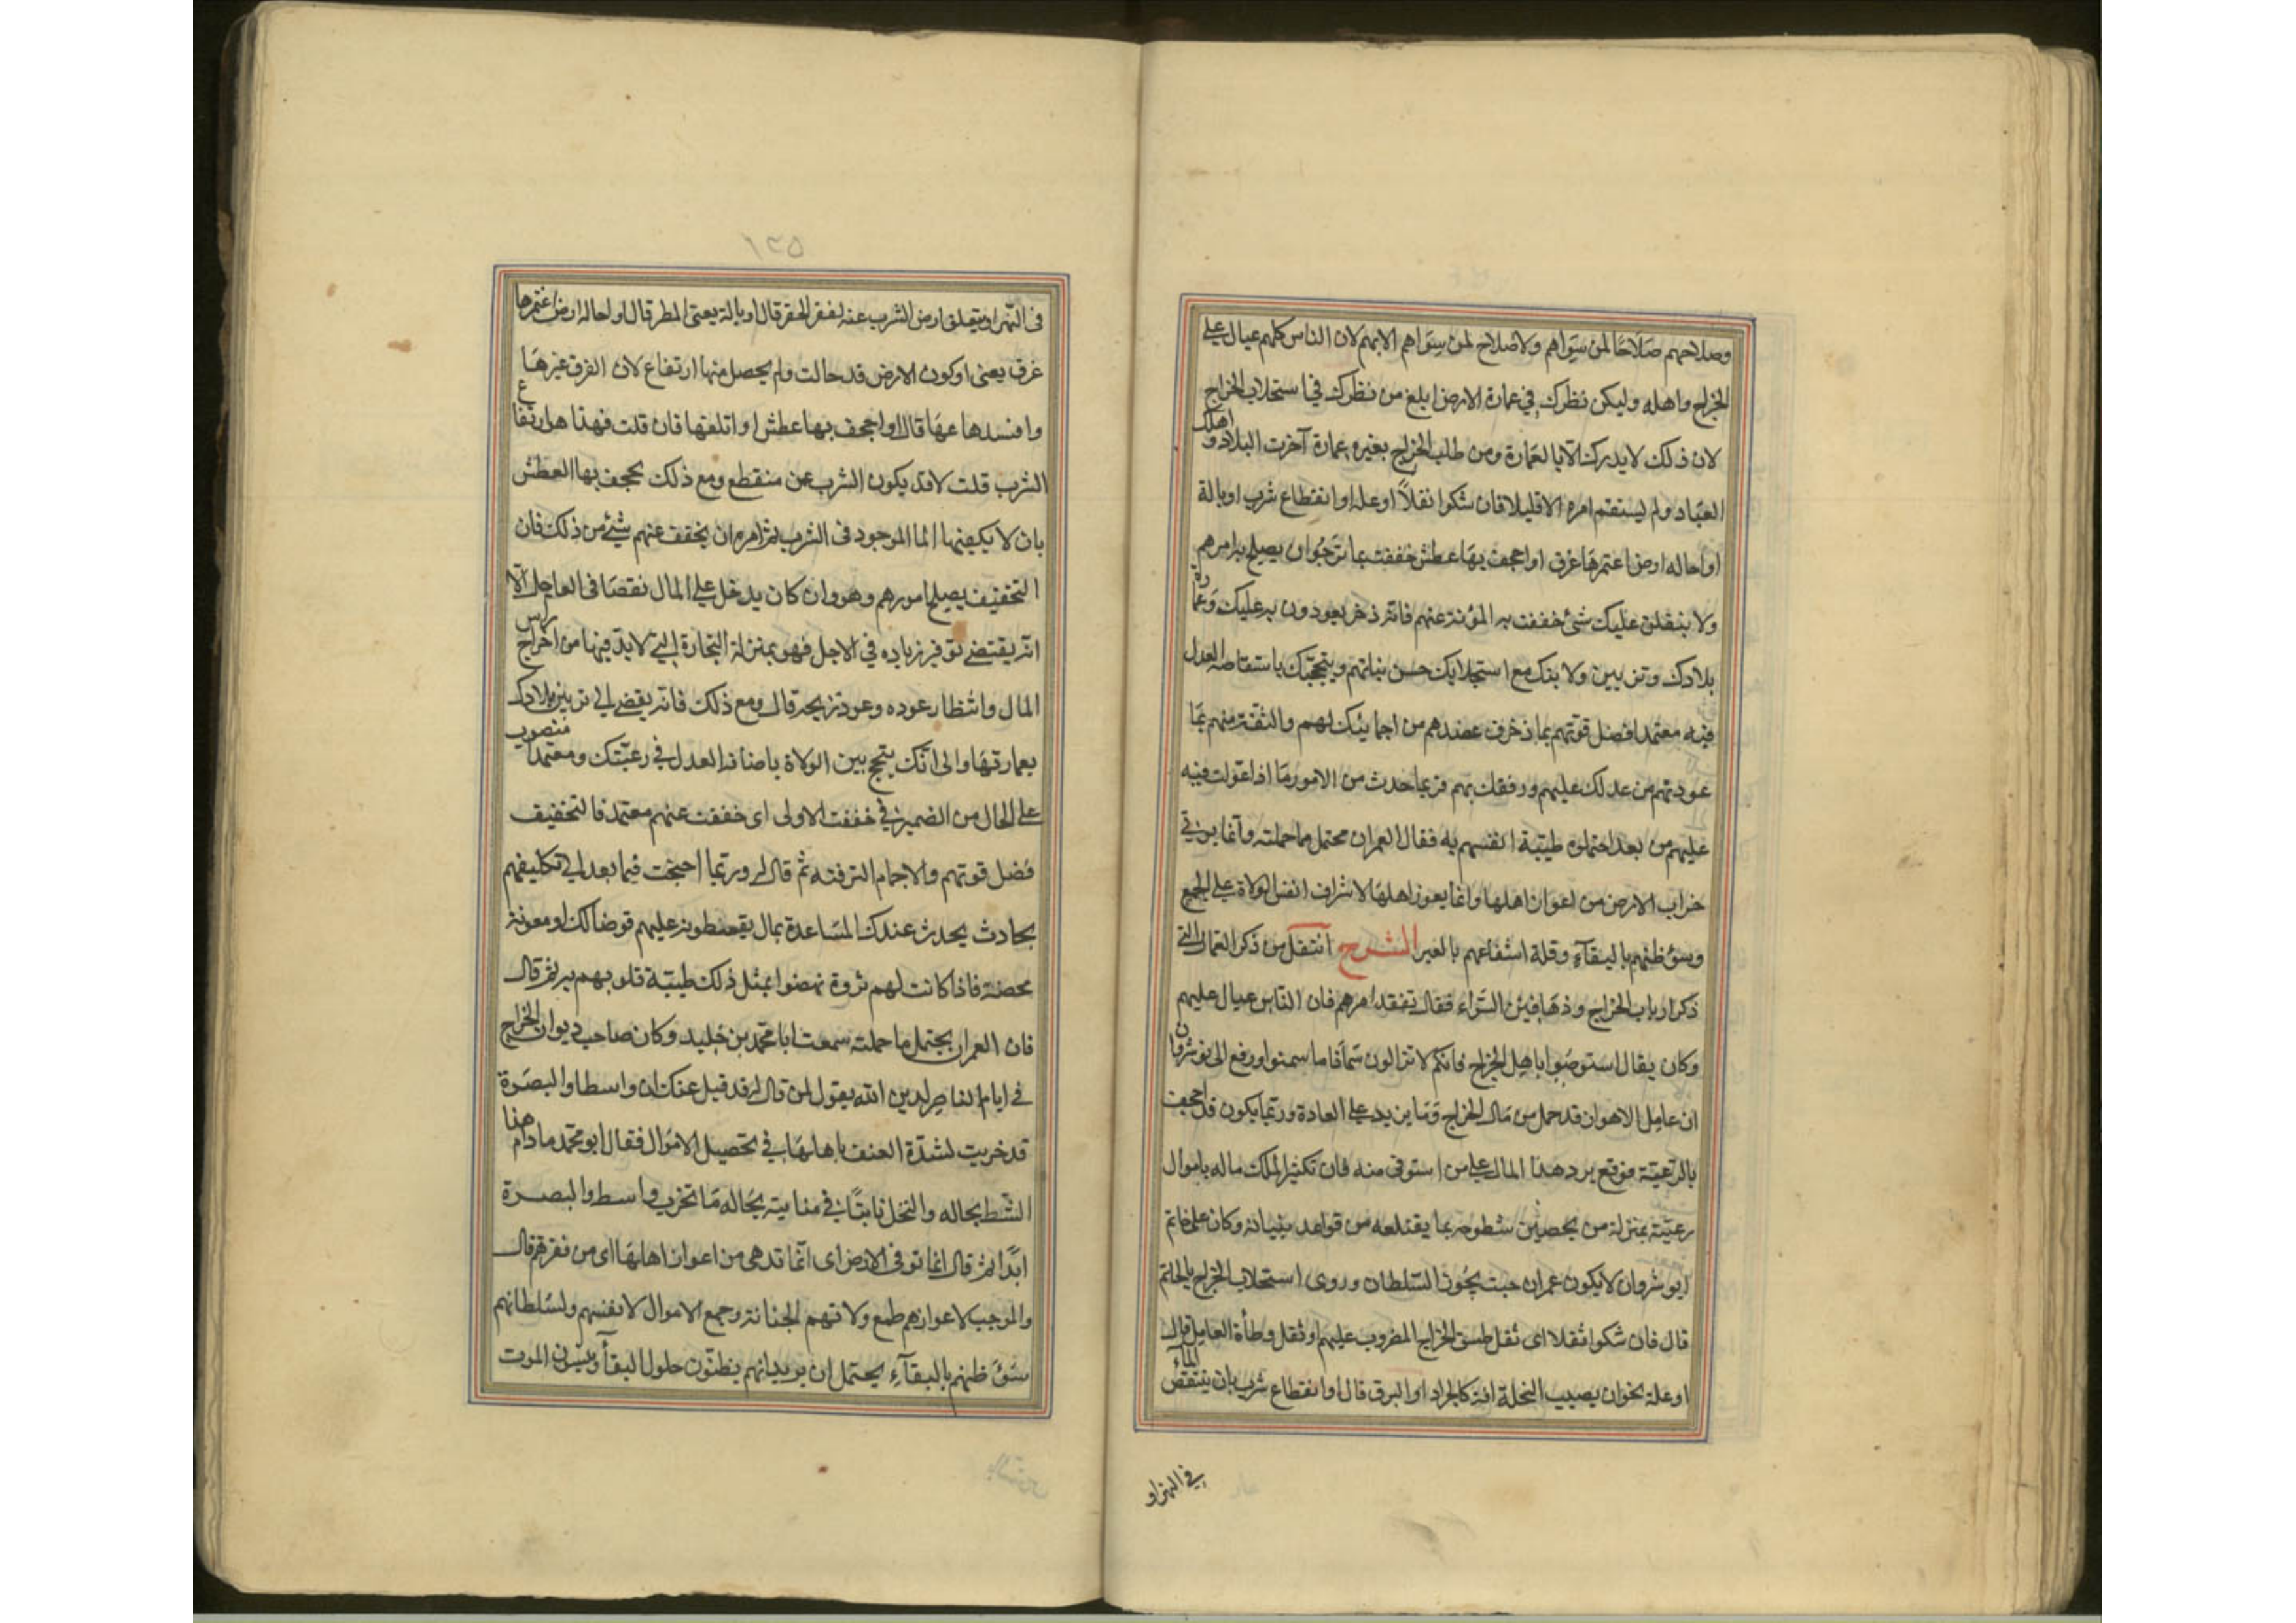 وصلاحهم صلاحا لمن سواهم ولا صلاح لمن سواهم الا بهم لان الناس كلهم عيال على
الخراج واهله وليكن نظرك في عمارة الارض ابلغ من نظرك في استجلاب الخراج
لان ذلك لا يدرك الا بالعمارة ومن طلب الخراج بغير عمارة اخرب البلاد و اهلك
العباد ولم يستقم امره الا قليلا فان شكوا ثقلاً او علة او انقطاع شرب او بالة
او احاله ارض اغتمرها غرق او اجحف بها عطش خففت بما ترجوا ان يصلح به امرهم
ولا يثقلن عليك شئ خففت به المؤنة عنهم فانه ذخر يعودون به عليك وعمارة
بلادك وتزيين ولايتك مع استجلابك حسن نياتهم وتبجحك باستفاضة العدل
فيه معتمدا فضل قوتهم بما ذخرت عندهم من اجمائك لهم والثقة منهم بما
عودتهم من عدلك عليهم ورفقك بهم فربما حدث من الامور ما اذا عولت فيه
عليهم من بعد احتملوه طيبة انفسهم به فقال العمران محتمل ما حملته وانما يؤتى
خراب الارض من اعوان اهلها وانما يعوز اهلها لاشراف انفس الولاة على الجمع
وسوء ظنهم بالبقآء وقلة انتفاعهم بالعبر الشرح انتقل من ذكر التي
ذكر ارباب الخراج السواء فقال تفقد امرهم فان الناس عيال عليهم
وكان يقال استوصوا باهل الخراج فانكم لا تزالون سمانا ما سمنوا ورفع الى نوشروان
ان عامل الاهوان قد حمل من مال الخراج ما يزيد على العادة وربما يكون قد اجحف
بالرعية فوقع يرد هذا المال على من استوفى منه فان تكثير الملك ماله باموال
رعيته بمنزلة من يحصن سطوحه بما يقتلعه من قواعد بنيانه وكان على خاتم
انوشروان لا يكون عمران حيث يجور السلطان وروى استحلاب الخراج
قال فان شكوا ثقلا اى ثقل طسق الخراج المضروب عليهم او ثقل وطأة العامل قال
او علة نحو ان يصيب الغلة افة كالجراد او البرق قال او انقطاع شرب بان ينتقص الماء
في النهر او
١٢٥
فى النهر او يتعلق ارض الشرب عنه لفقر الحفر قال او بالة يعنى المطر قال او احاله ارض اغتمرها
غرق يعنى او كون الارض قد حالت ولم يحصل منها ارتفاع لان الغرق غيرها
وافسدها قال او اجحف بها عطش اى اتلفها فان قلت فهذا هو ارتفاع
الشرب قلت لا قد يكون الشرب غير منقطع ومع ذلك يجحف بها العطش
بان لا يكفيها الما الموجود فى الشرب ثم امره ان يخفف عنهم شئ من ذلك فان
التخفيف يصلح امورهم وهو وان كان يدخل على المال نقصا فى العاجل الا
انه يقتضى توفير زياده في الاجل فهو بمنزلة التجارة التى لابد فيها من اخراج راس
المال وانتظار عوده وعودة ربحه قال ومع ذلك فانه يفضى الى تزيين بلادك
بعمارتها والى انك تبجح بين الولاة باضافة العدل في رعيتك ومعتمدا منصوب
على الحال من الضمير في خففت الاولى اى خففت عنهم معتمدا بالتخفيف
فضل قوتهم والاجمام الترفيه ثم قال له وربما احتجت فيما بعد الى تكليفهم
بحادث يحدث عندك المساعدة بمال يقسطونه عليهم قرضا لك او معونة
محضة فاذا كانت لهم ثروة نهضوا بمثل ذلك طيبة قلوبهم به ثم قال
فان العمران يحتمل ما حملته سمعت ابا محمد بن خليد وكان صاحب ديوان الخراج
في ايام الناصر لدين الله يقول لمن قال له قد قيل عنك ان واسطا والبصرة
قد خربت لشدة العنف باهلها في تحصيل الاموال فقال ابو محمد ما دام هذا
الشط بحاله والنخل نابتا في منابته بحاله ما تخرب واسط والبصرة
ابدا ثم قال انما تؤتى الارض اى انما تدهى من اعوان اهلها اى من فقرهم قال
والموجب لاعوازهم طمع ولاتهم الجنانة وجمع الاموال لانفسهم ولسلطانهم
سوء ظنهم بالبقآء يحتمل ان يريد انهم يظنون طول البقاء وينسون الموت